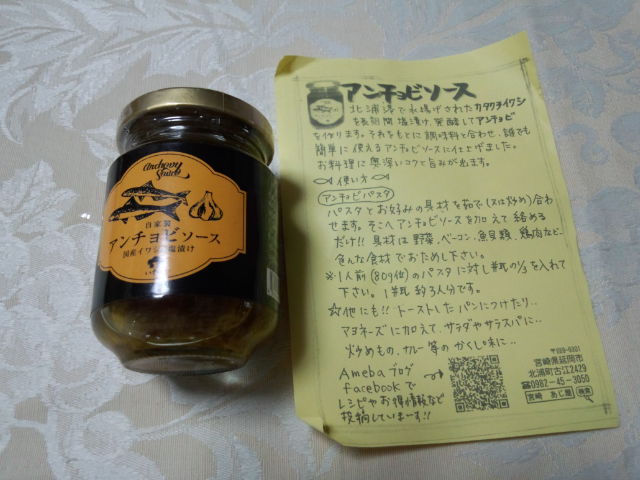 Anchovy
Sauce
自家製
アンチョビソース
国産イワシ塩漬け
アンチョビソース
北浦港で水揚げされたカタクチイワシ
を長期間塩漬け、発酵してアンチョビ
を作ります。それをもとに調味料と合わせ、誰でも
簡単に使えるアンチョビソースに仕上げました。
お料理に奥深いコクと旨みが出ます。
使い方
アンチョビパスタ
パスタとお好みの具材を茹で(又は炒め)合わ
せます。そこへアンチョビソースを加えて絡める
だけ!!具材は野菜、ベーコン、魚貝類、鶏肉など…
色んな食材でお試し下さい。
※1人前(80g位)のパスタに対し1瓶の1/3を入れて
下さい。1瓶約3人分です。
☆他にも!!トーストしたパンにつけたり…
マヨネーズに加えて、サラダやサラスパに…
炒めもの、カレー等のかくし味に…
Amebaブログ
facebookで
レシピやお得情報など
投稿していまーす!!
〒889-0301
宮崎県延岡市
北浦町古江2429
☎0982-45-3050
宮崎 あじ屋 検索